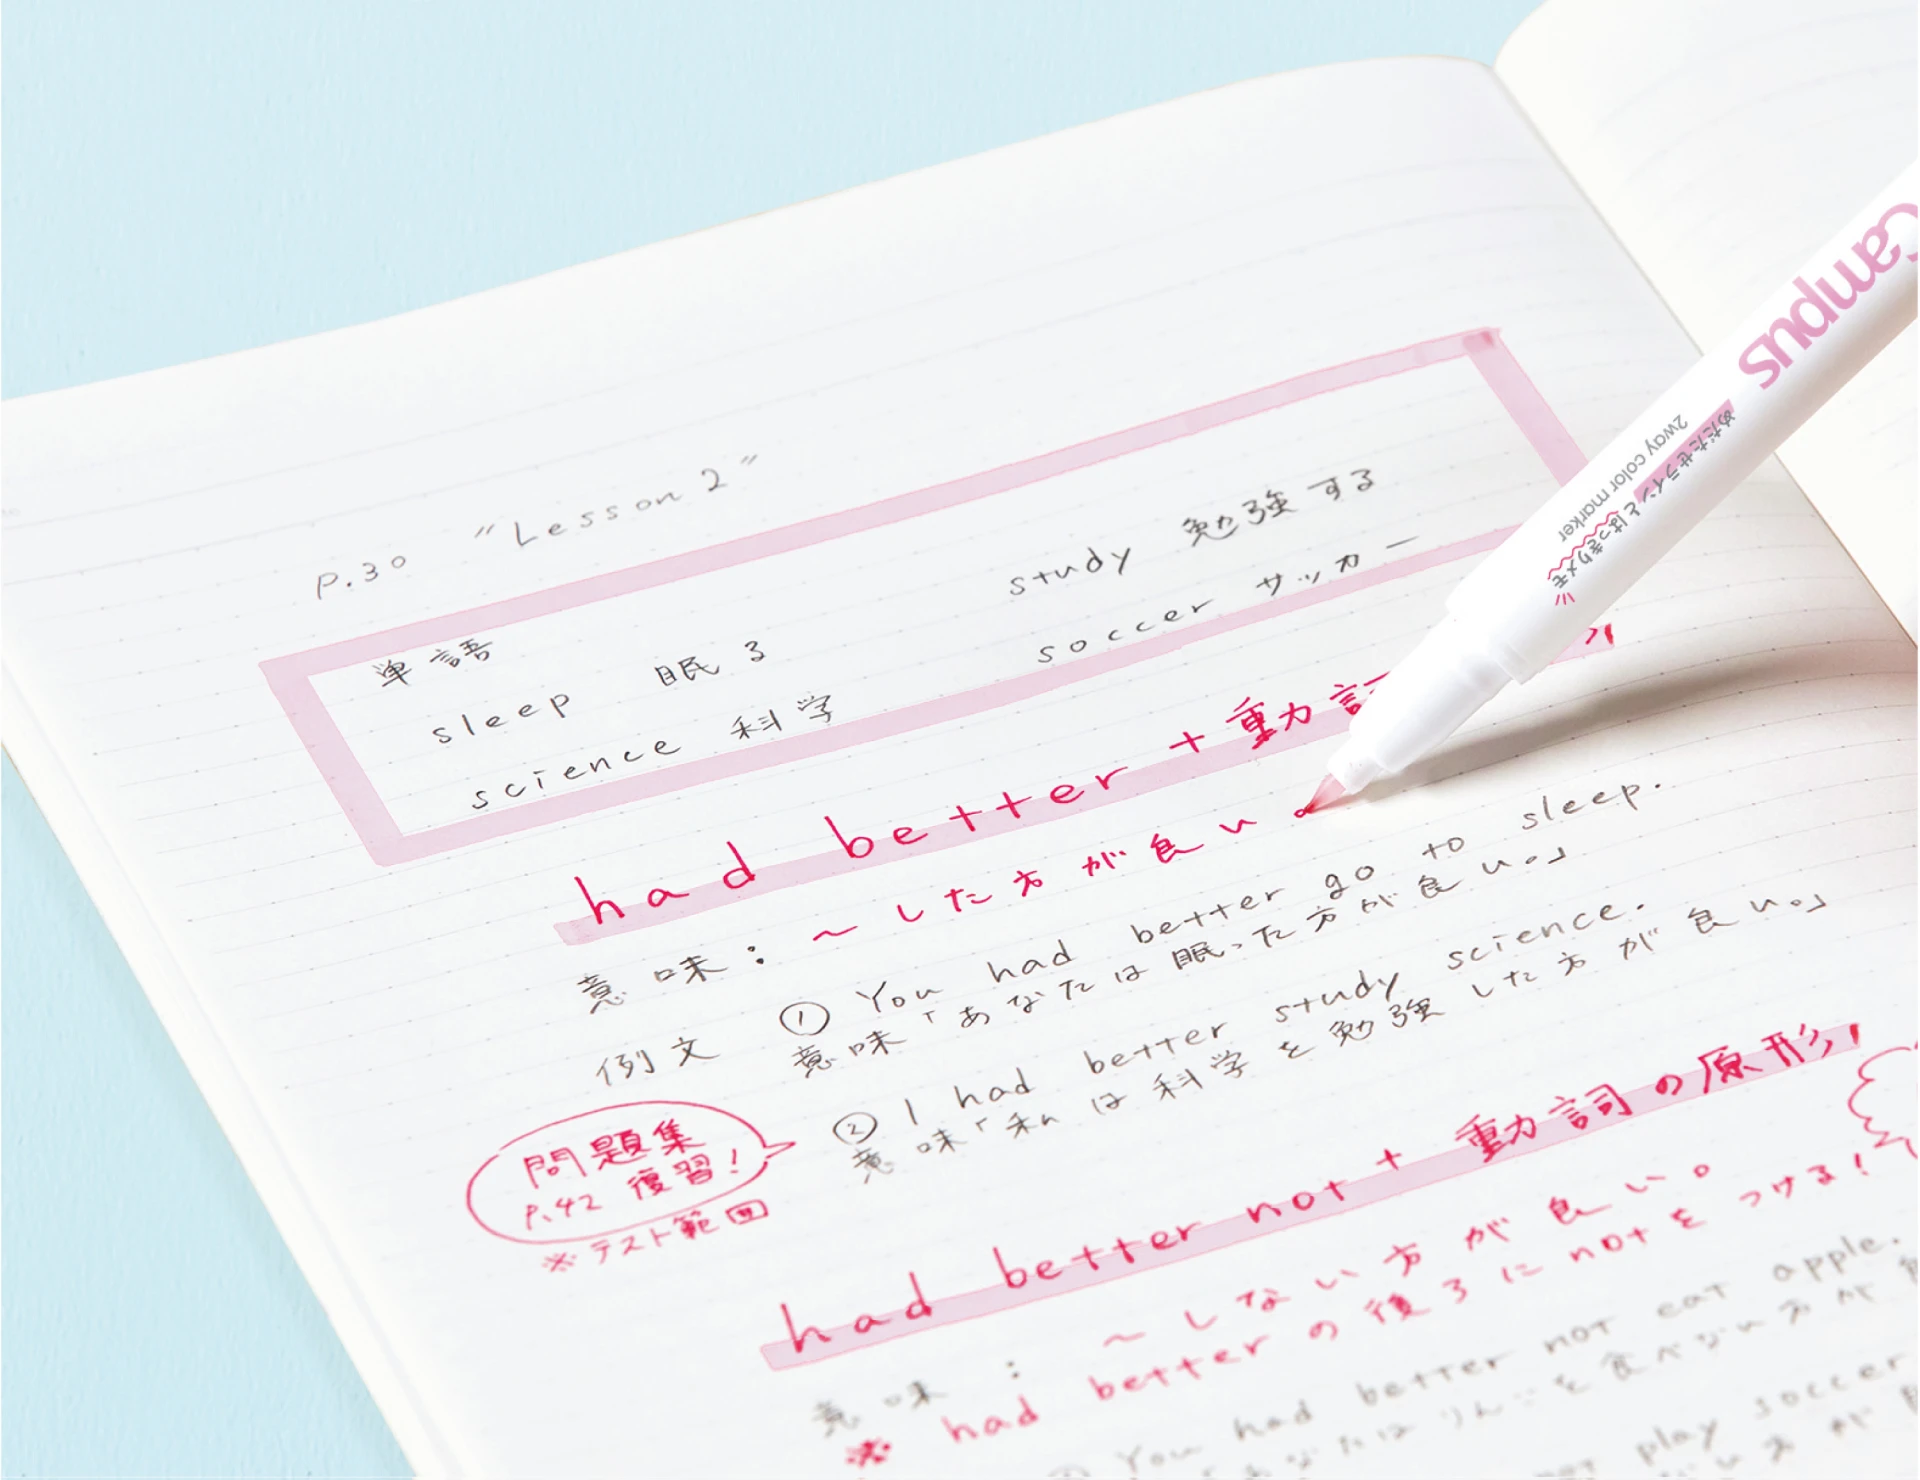 P.30 "Lesson 2"
単語
sleep 眠る study 勉強する
science 科学 soccer サッカー
had better + 動詞
意味: ～した方が良い
例文 ① You had better go to sleep.
意味「あなたは眠った方が良い。」
② I had better study science.
意味「私は科学を勉強した方が良い。」
問題集
P.42 復習!
※テスト範囲
had better not + 動詞の原形
意味: ～しない方が良い。
※ had betterの後ろにnotをつける!
You had better not eat apple.
「あなたはりんごを食べない方が
play soccer
Campus
めだたせラインとはっきりメモ
2way color marker